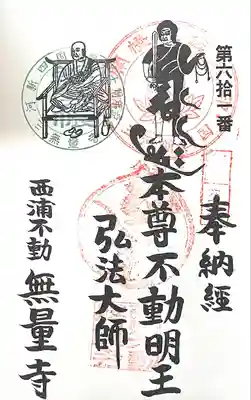 第六拾一番
奉納経
本尊不動明王
弘法大師
西浦不動
無量寺